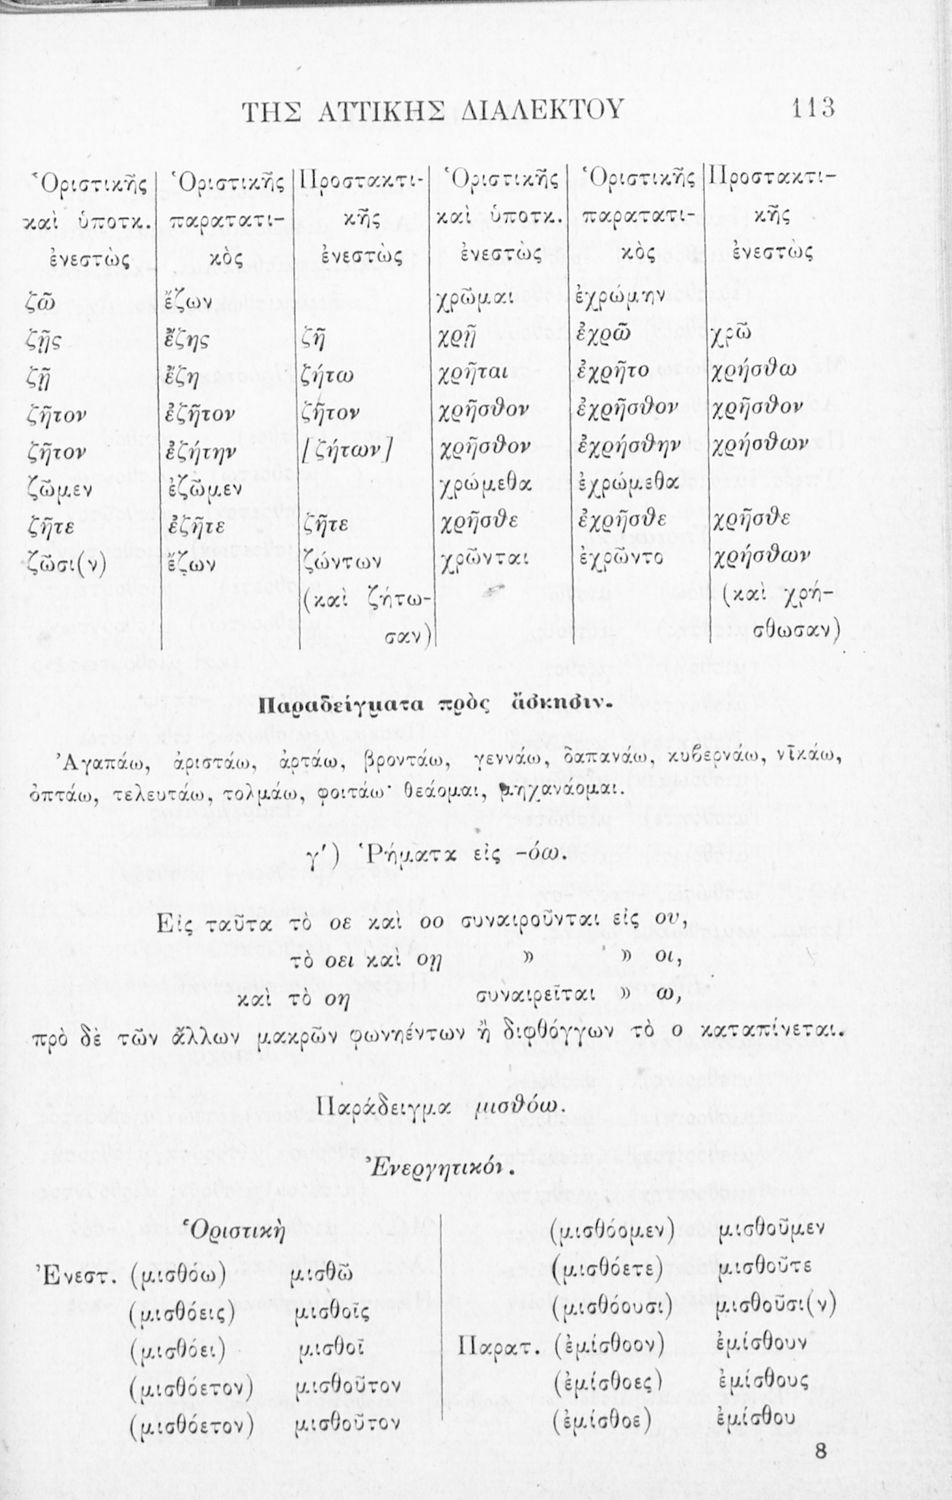 ΤΗΣ ΑΤΤΙΚΗΣ ΔΙΑΛΕΚΤΟΥ 113
Ὁριστικῆς Ὁριστικῆς Προστακτι- Ὁριστικῆς Ὁριστικῆς Προστακτι-
καὶ ὑποτκ. παρατατι- κῆς καὶ ὑποτκ. παρατατι- κῆς
ἐνεστὼς κὸς ἐνεστὼς ἐνεστὼς κὸς ἐνεστὼς
ζῶ ἔζων χρῶμαι ἐχρώμην
ζῇς ἔζης ζῆ χρῇ ἐχρῶ χρῶ
ζῇ ἔζη ζήτω χρῆται ἐχρῆτο χρήσθω
ζῆτον ἐζῆτον ζῆτον χρῆσθον ἐχρῆσθον χρῆσθον
ζῆτον ἐζήτην [ζήτων] χρῆσθον ἐχρήσθην χρήσθων
ζῶμεν ἐζῶμεν χρώμεθα ἐχρώμεθα
ζῆτε ἐζῆτε ζῆτε χρῆσθε ἐχρῆσθε χρῆσθε
ζῶσι(ν) ἔζων ζώντων χρῶνται ἐχρῶντο χρήσθων
(καὶ ζήτω- (καὶ χρή-
σαν) σθωσαν)
Παραδείγματα πρὸς ἄσκησιν.
Ἀγαπάω, ἀριστάω, ἀρτάω, βροντάω, γεννάω, δαπανάω, κυβερνάω, νῑκάω,
ὀπτάω, τελευτάω, τολμάω, φοιτάω· θεάομαι, μηχανάομαι.
γ′) Ῥήματα εἰς -όω.
Εἰς ταῦτα τὸ οε καὶ οο συναιροῦνται εἰς ου,
τὸ οει καὶ οῃ » » οι,
καὶ τὸ οη συναιρεῖται » ω,
πρὸ δὲ τῶν ἄλλων μακρῶν φωνηέντων ἢ διφθόγγων τὸ ο καταπίνεται.
Παράδειγμα μισθόω.
Ἐνεργητικόν.
Ὁριστικὴ (μισθόομεν) μισθοῦμεν
Ἐνεστ. (μισθόω) μισθῶ (μισθόετε) μισθοῦτε
(μισθόεις) μισθοῖς (μισθόουσι) μισθοῦσι(ν)
(μισθόει) μισθοῖ Παρατ. (ἐμίσθοον) ἐμίσθουν
(μισθόετον) μισθοῦτον (ἐμίσθοες) ἐμίσθους
(μισθόετον) μισθοῦτον (ἐμίσθοε) ἐμίσθου
8